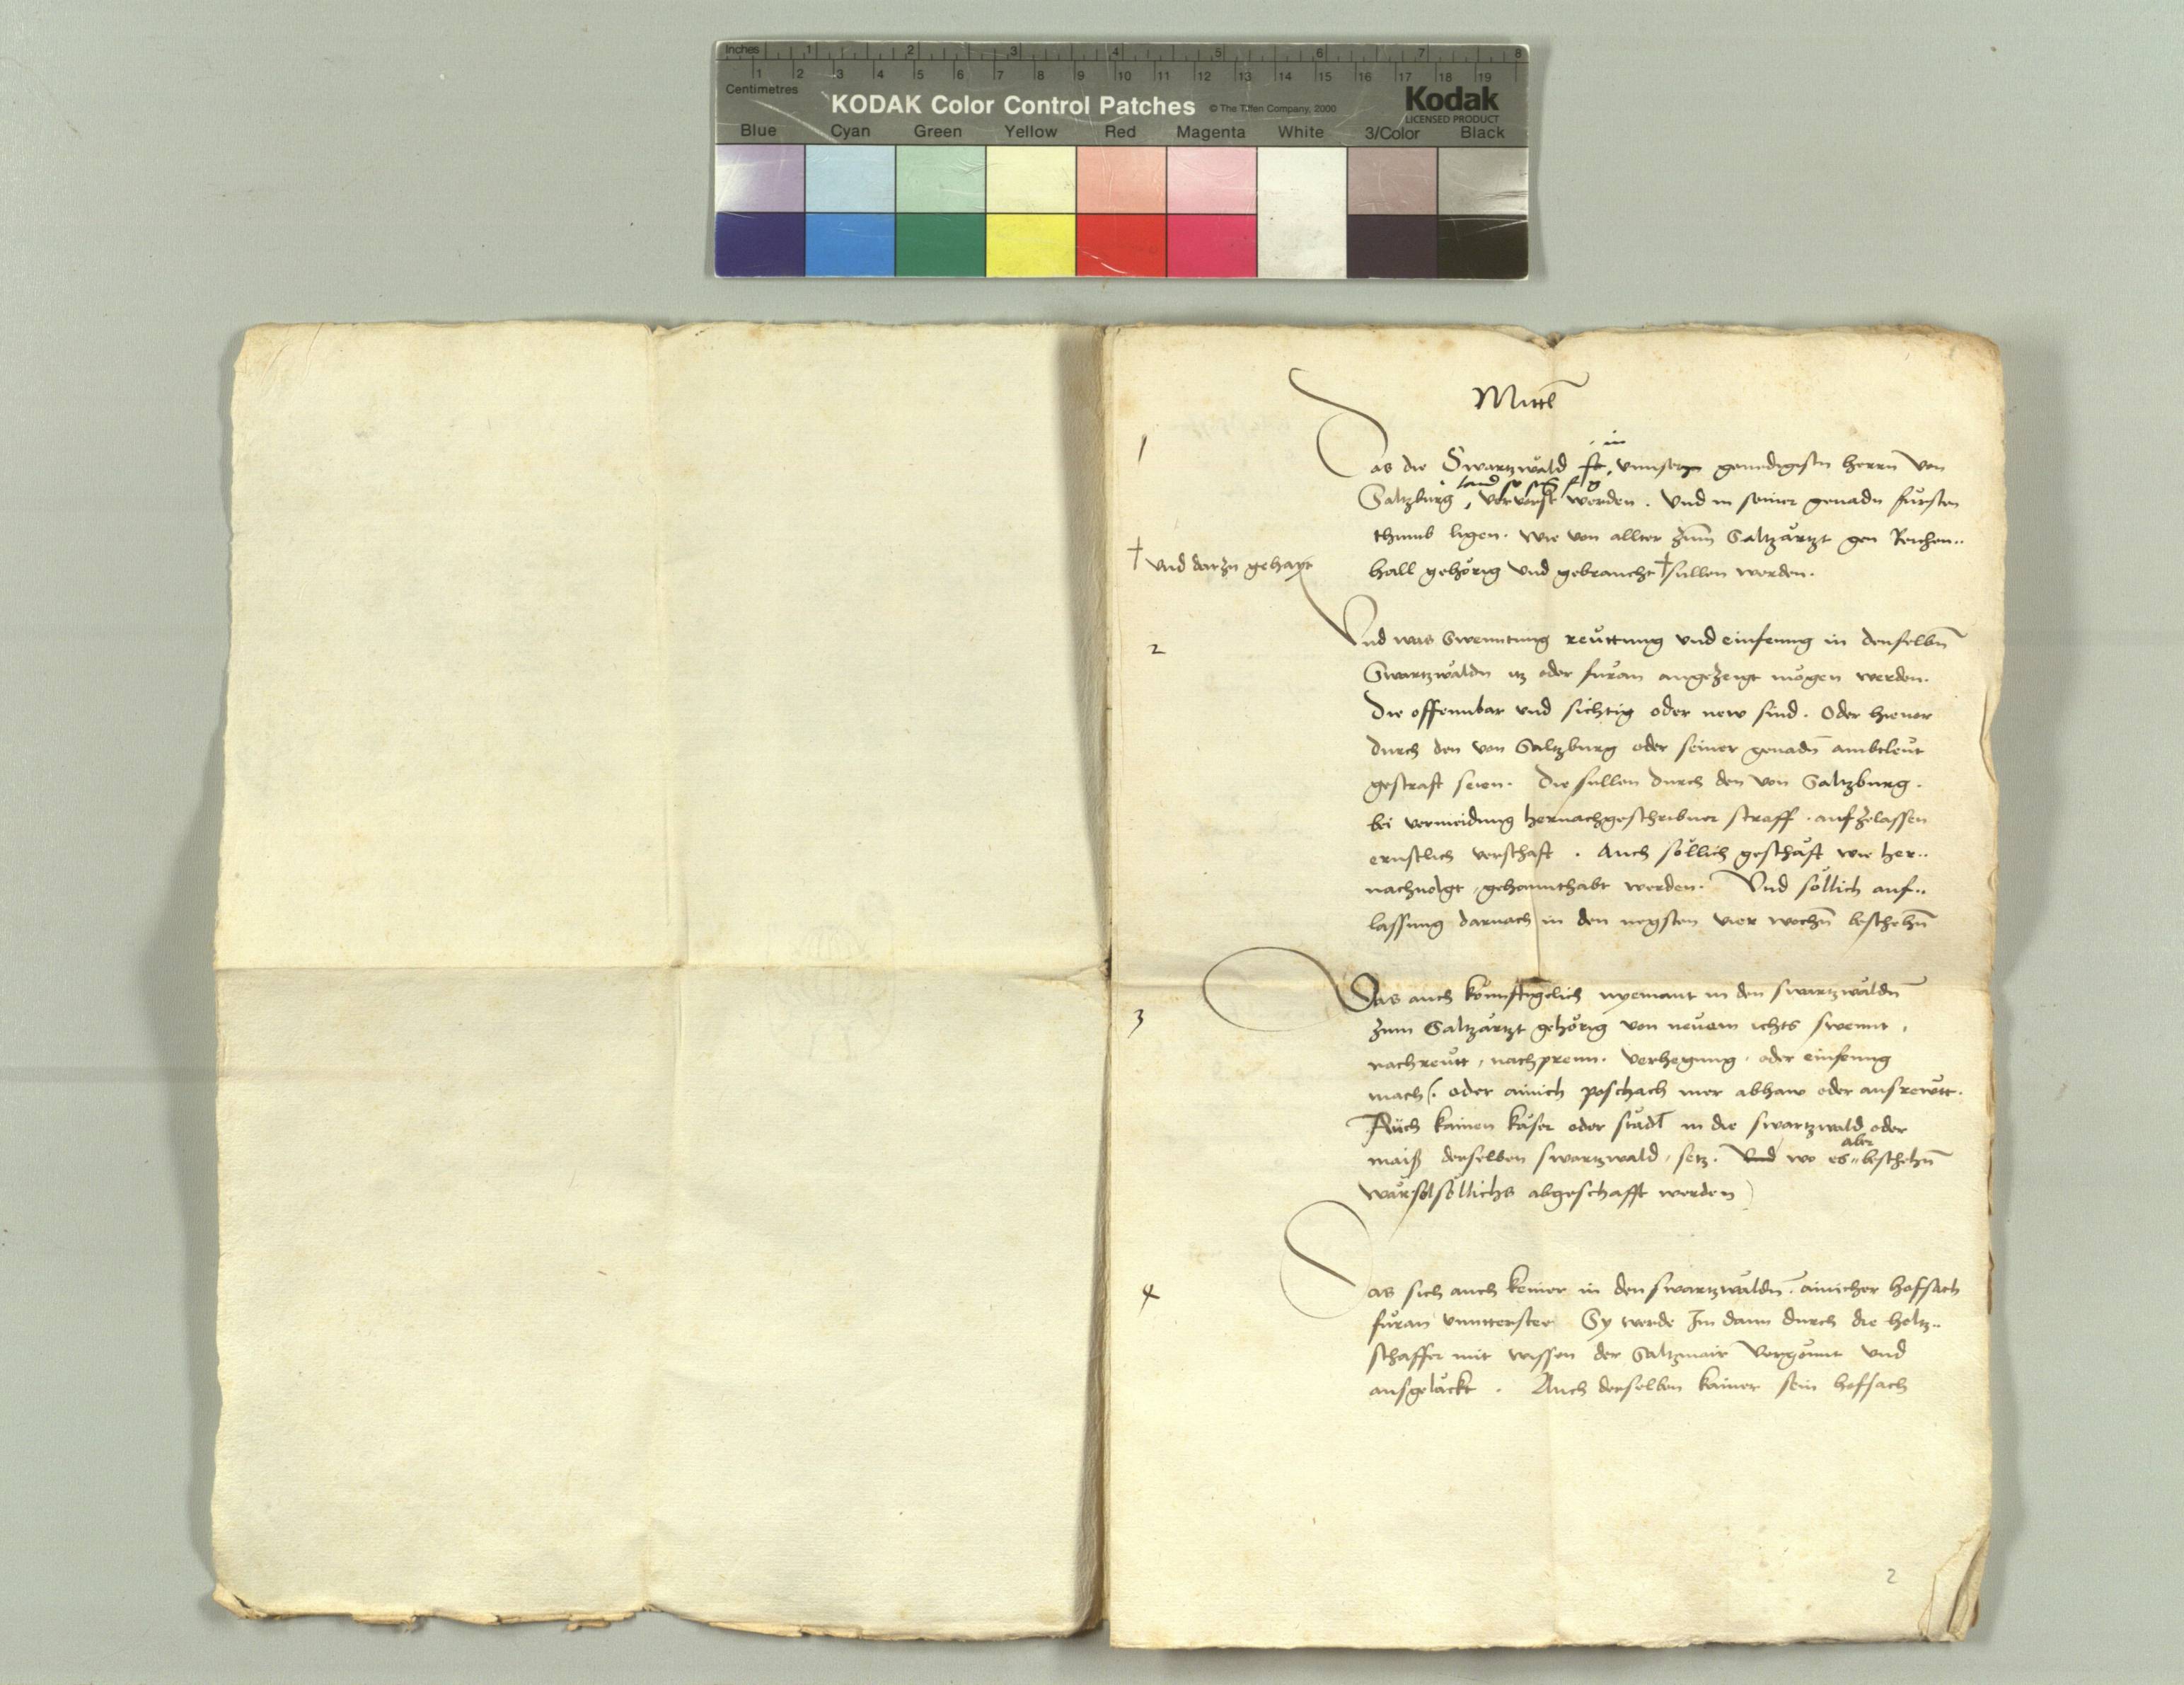 Inches 1 2 3 4 5 6 7 8
Centimetres 1 2 3 4 5 6 7 8 9 10 11 12 13 14 15 16 17 18 19
KODAK Color Control Patches © The Tiffen Company, 2000 Kodak
LICENSED PRODUCT
Blue Cyan Green Yellow Red Magenta White 3/Color Black
Mittl
1
in
Das die Swartzwäld unnserm genedigisten herrn von
land so
Saltzburg, vervorst werden. Und in seiner genadn fürsten
thumb ligen. Wie von allter zum Saltzärtzt gen Reichen..
† und darzu gehayt
hall gehörig und gebraucht † sullen werden.
2
Und was Swenntung reüttung und einfenng in denselbn
Swartzwäldn itz oder füran angezeigt mögen werden.
Die offennbar und sichtig oder new sind. Oder hievor
durch den von Saltzburg oder seiner genadn ambtleüt
gestraft seien. Die sullen durch den von Saltzburg.
bei vermeidung hernachgeschribner straff. aufzelassen
ernstlich verschaft. Auch söllich geschäft wie her..
nachvolgt, gehannthabt werden. Und söllich auf..
lassung darnach in den negsten vier wochn beschehn
3
Das auch könnftigclich nyemant in den swartzwäldn
zum Saltzärtzt gehörig von neüem ichts swennt,
nachreütt, nachprenn. verhegung. oder einfenng
mach. oder ainich poschach mer abhaw oder ausrewtt.
Auch kainen käser oder städl in die swartzwäld oder
aber
maiß derselben swartzwäld, setz. Und wo es beschehn
wär sol söllichs abgeschafft werden
4
Das sich auch keiner in den swartzwäldn. ainicher hofsach
füran unntterstee Sy werde Im dann durch die holtz..
schaffer mit wissen der Saltzmair vergönnt und
ausgeläckt. Auch derselben kainer sein hofsach
2